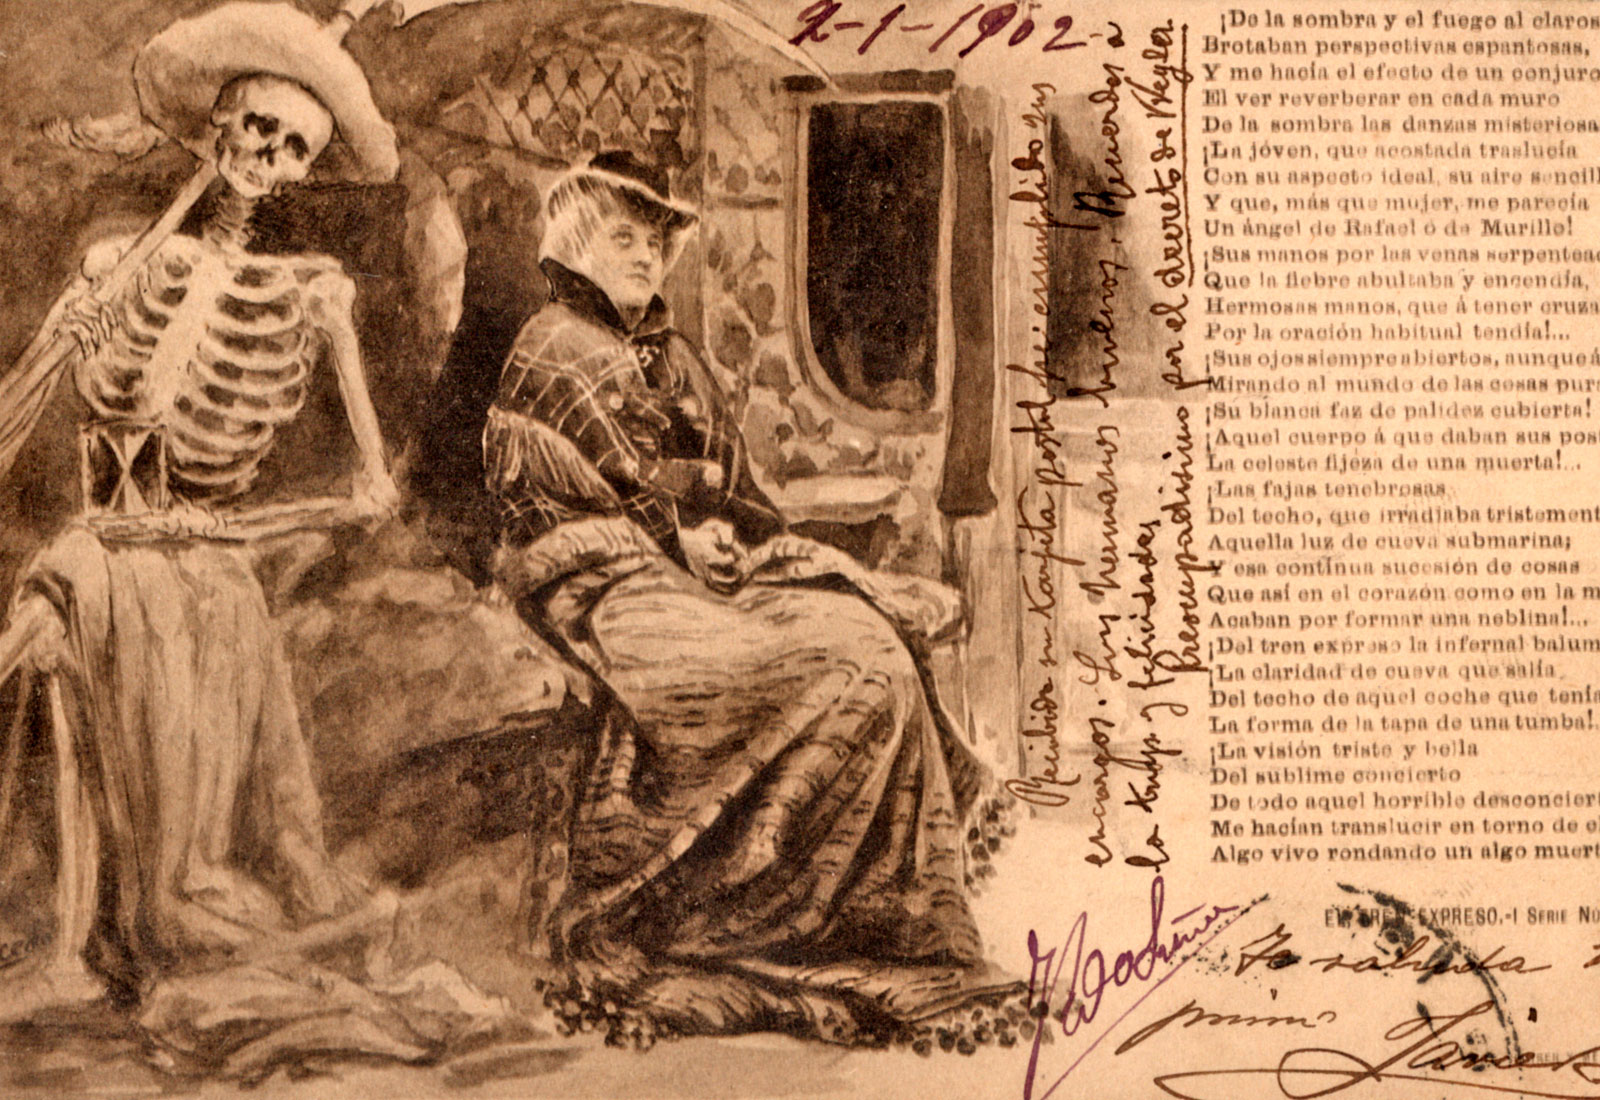 2-1-1902
Recibida su tarjeta postal he cumplido sus
encargos. Sus hermanos buenos. Recuerdos á
la y felicidades
por el decreto de
¡De la sombra y el fuego al claros
Brotaban perspectivas espantosas,
Y me hacía el efecto de un conjuro
El ver reverberar en cada muro
De la sombra las danzas misteriosa
¡La jóven, que acostada traslucía
Con su aspecto ideal, su aire sencill
Y que, más que mujer, me parecía
Un ángel de Rafael ó de Murillo!
¡Sus manos por las venas serpentead
Que la fiebre abultaba y encendía,
Hermosas manos, que á tener cruza
Por la oración habitual tendía!...
¡Sus ojos siempre abiertos, aunque á
Mirando al mundo de las cosas pura
¡Su blanca faz de palidez cubierta!
¡Aquel cuerpo á que daban sus post
La celeste fijeza de una muerta!...
¡Las fajas tenebrosas
Del techo, que irradiaba tristement
Aquella luz de cueva submarina;
Y esa contínua sucesión de cosas
Que así en el corazón como en la m
Acaban por formar una neblina!...
¡Del tren expreso la infernal balum
¡La claridad de cueva que salía
Del techo de aquel coche que tenía
La forma de la tapa de una tumba!.
¡La visión triste y bella
Del sublime concierto
De todo aquel horrible desconciert
Me hacían translucir en torno de el
Algo vivo rondando un algo muert
EL TREN EXPRESO.-I SERIE NÚ
Te saluda
primo